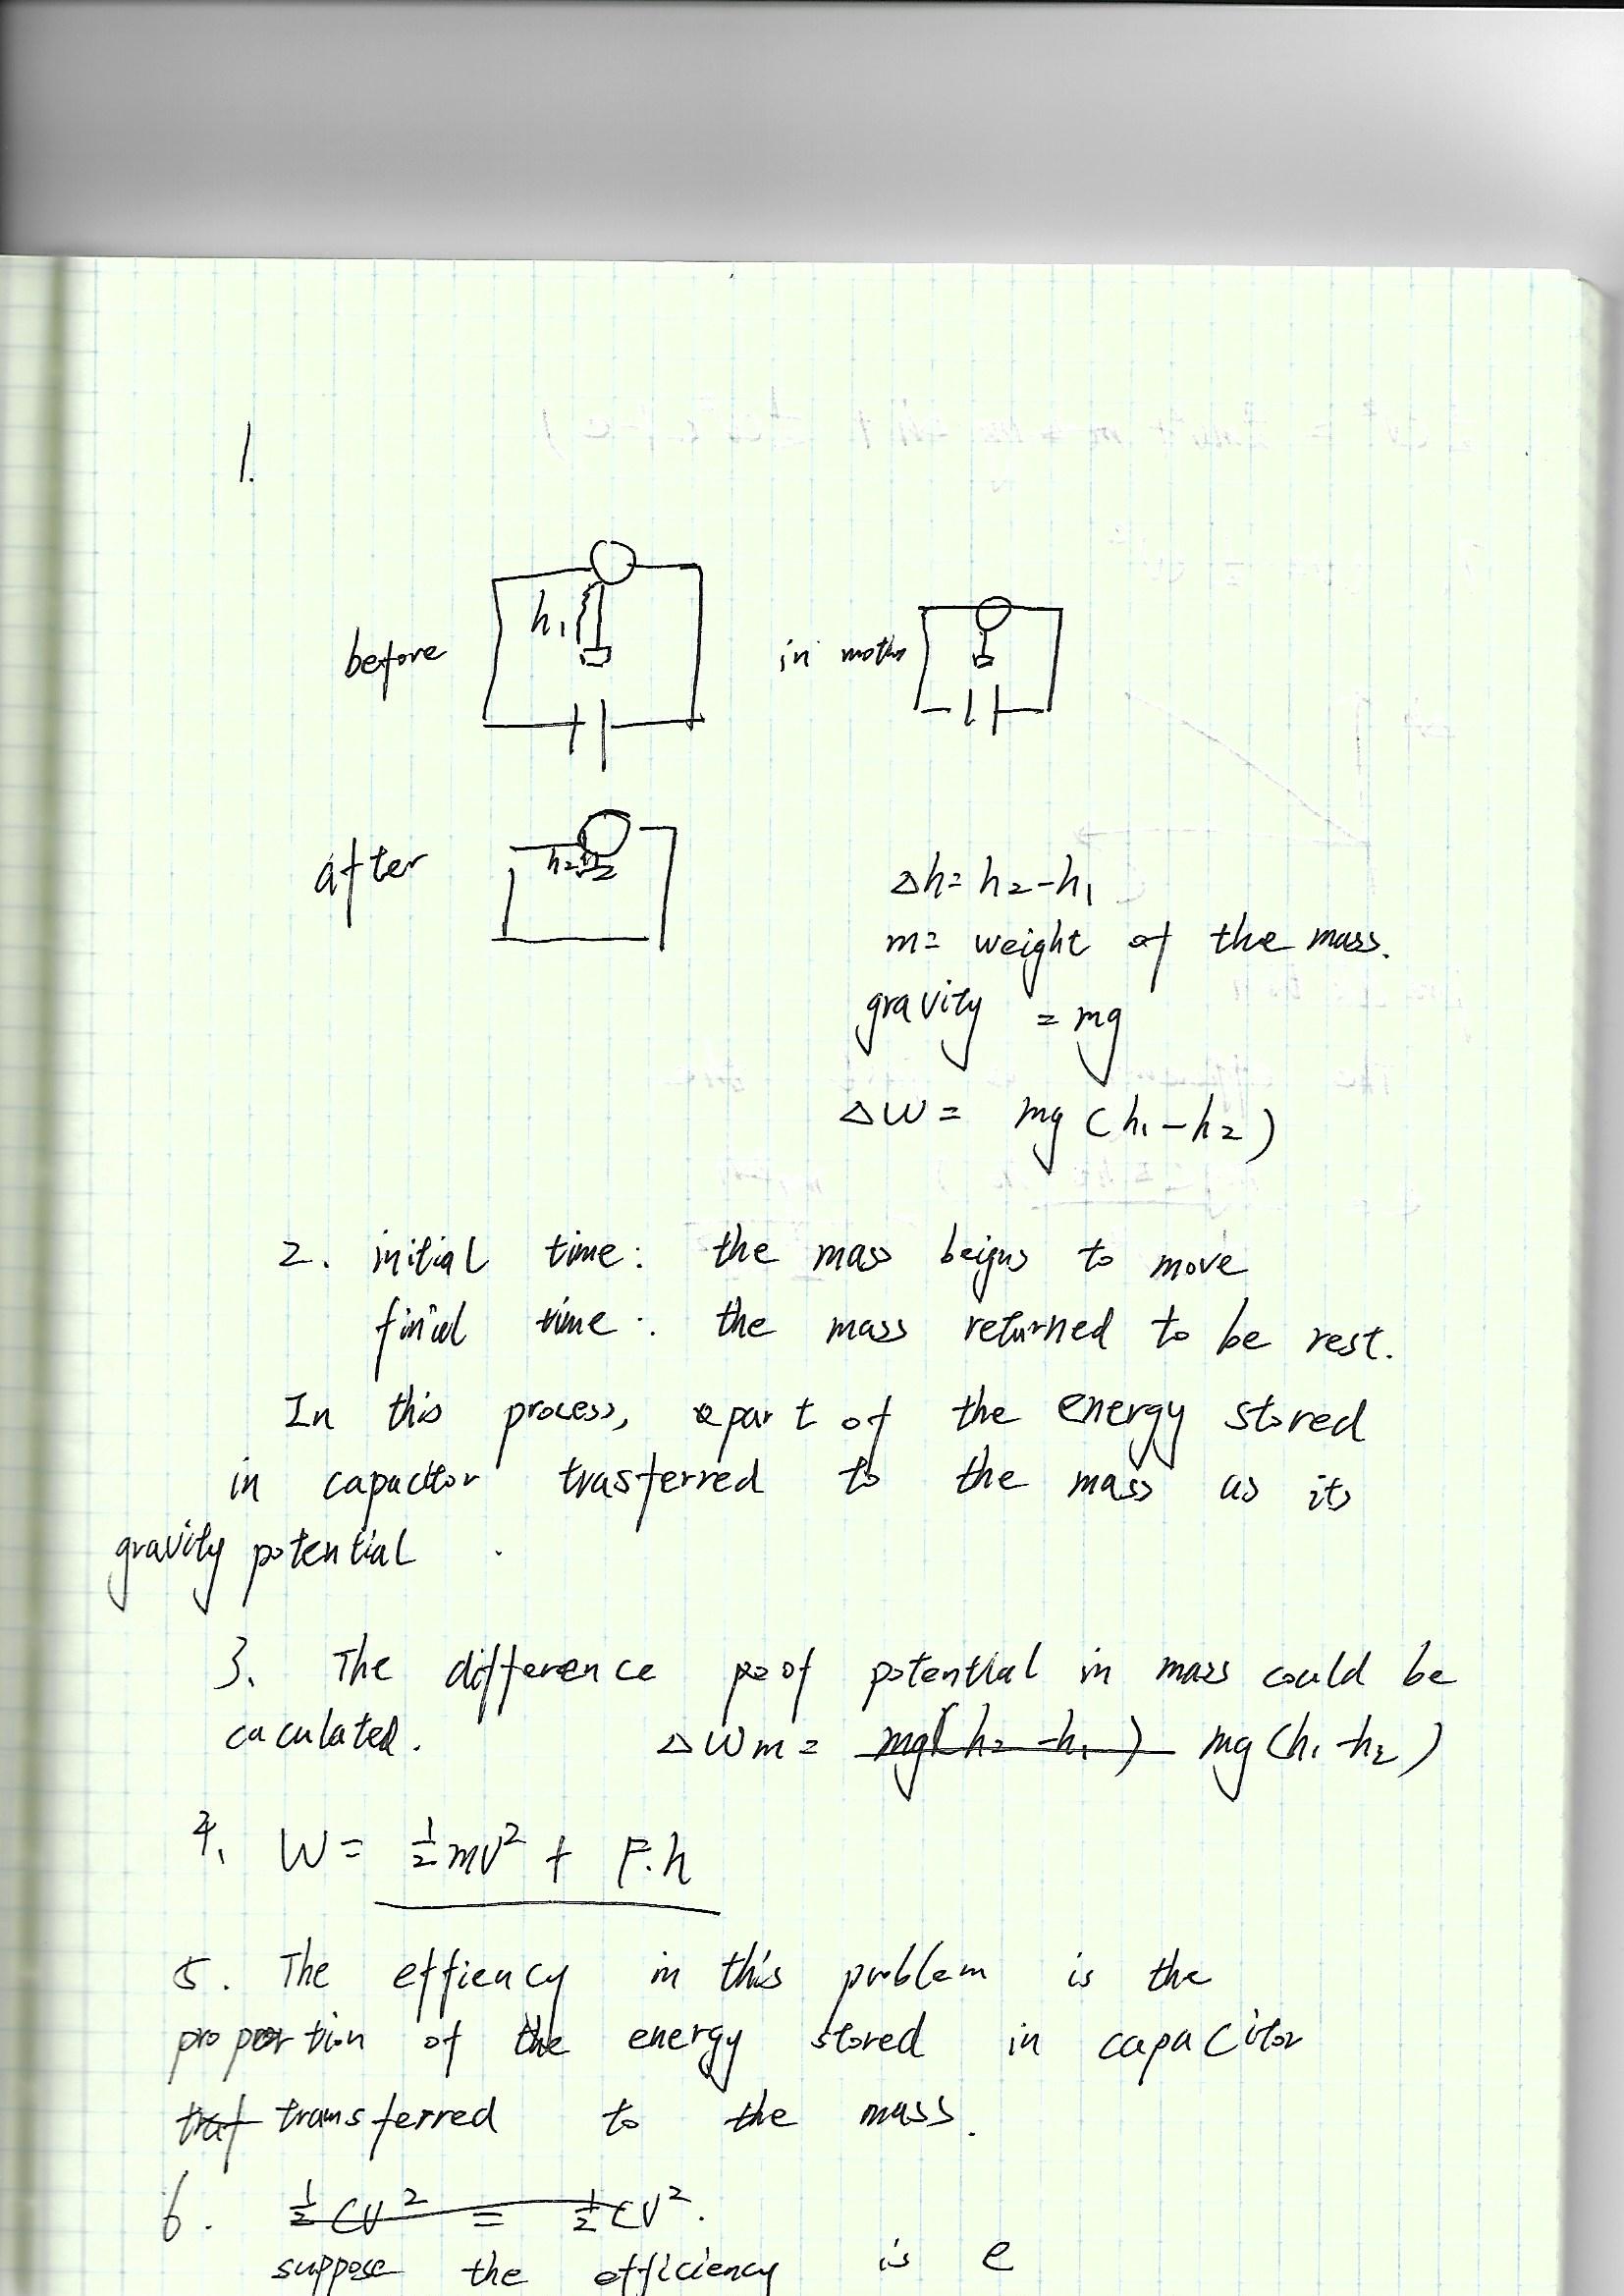 1.
before h₁ in motion
after h₂
Δh = h₂-h₁
m = weight of the mass.
gravity = mg
ΔW = mg (h₁-h₂)
2. initial time: the mass beigns to move
final time: the mass returned to be rest.
In this process, a part of the energy stored
in capacitor trasferred to the mass as its
gravity potential .
3. The difference of potential in mass could be
caculated. ΔWm = mg(h₂-h₁) mg(h₁-h₂)
4. W = ½mv² + F.h
5. The effiency in this problem is the
proportion of the energy stored in capacitor
transferred to the mass.
6. ½CV² = ½CV².
suppose the efficiency is e